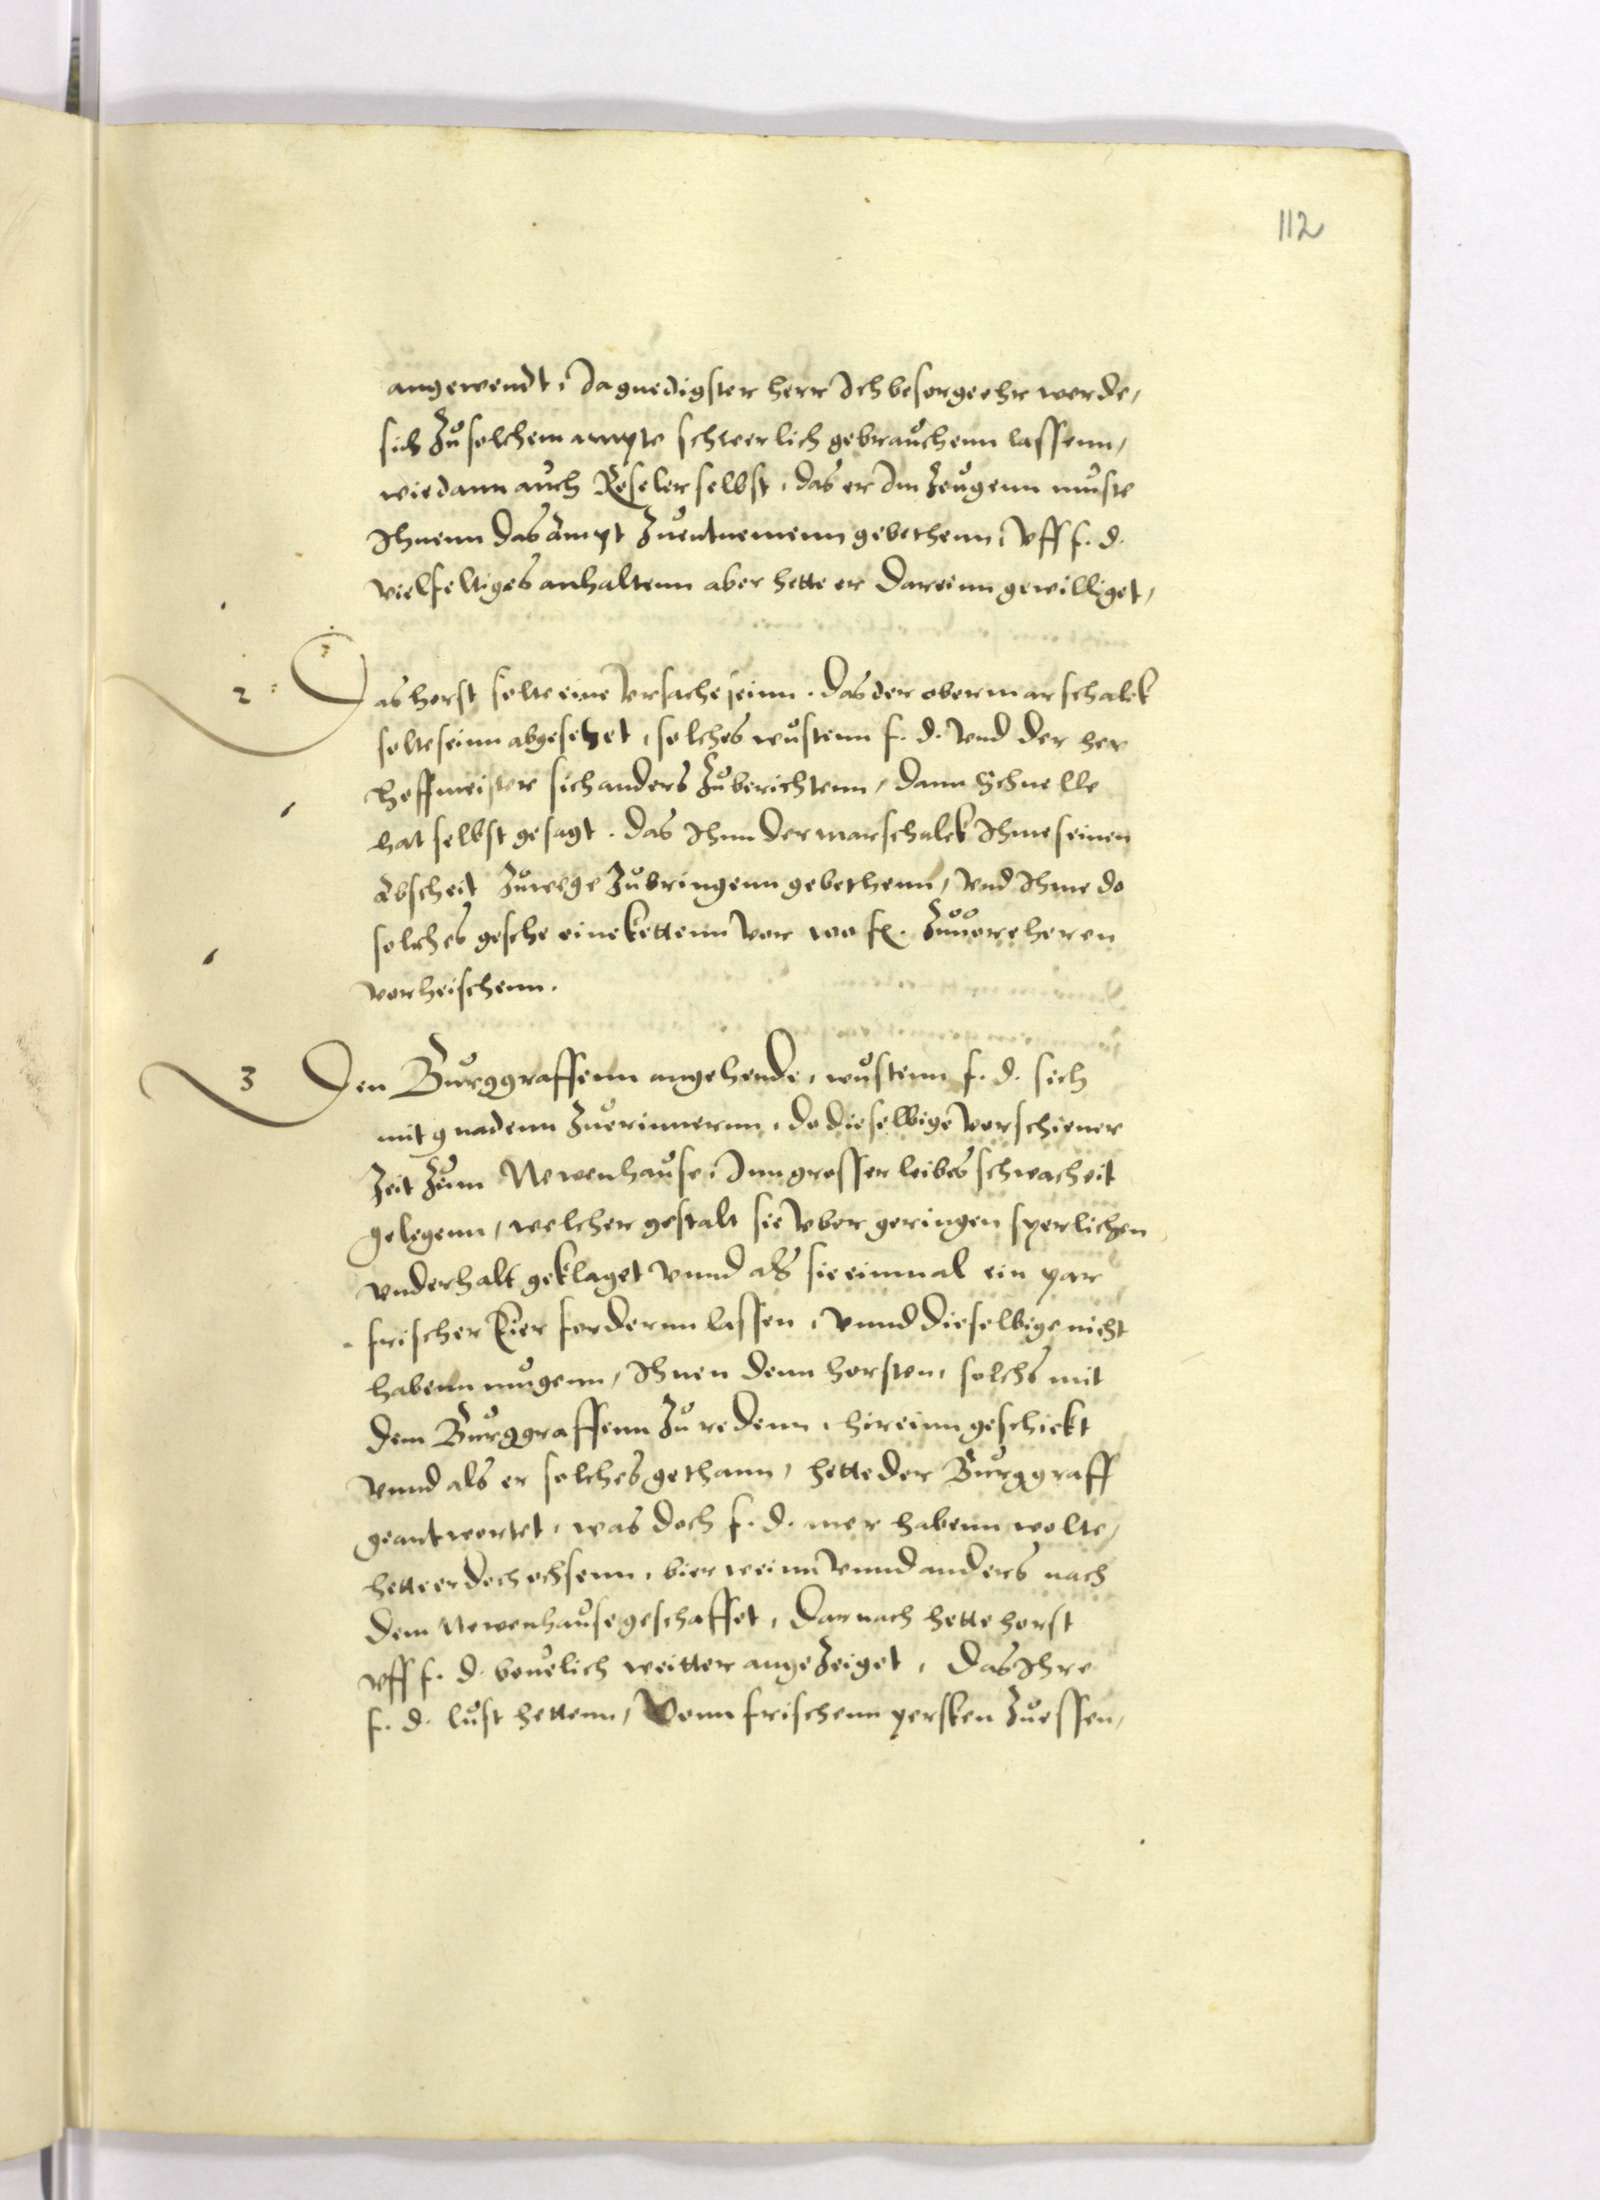 112
angewendt, Da gnedigster herr Ich besorge ehr werde,
sich Zu solchem ampte schweerlich gebrauchenn lassenn,
wie dann auch Reseler selbst, das er Im Zeugenn muste
Ihnenn das Ampt Zuentnemenn gebethenn, Vff f. d.
vielfeltiges anhaltenn aber hette er dareinn gewilliget,
2 Das horst solte eine Vrsache seinn. das der obermarschalck
solte seinn abgesetzet, solches wustenn f. d. Vnd der her
Hoffmeister sich anders Zuberichtenn, dann Schnelle
hat selbst gesagt. das Ihnn der marschalck Ihme seinen
Abscheit Zuwege Zubringenn gebethenn, Vnd Ihme do
solches geschee eine kettenn vor 100 fl. Zuuorehren
vorheischenn.
3 Den Burggraffenn angehende, wustenn f. d. sich
mit gnadenn Zuerinnernn, do dieselbige vorschiener
Zeit Zum Newenhause, Inn grosser leibes schwacheit
gelegenn, welcher gestalt sie vber geringen sperlichen
vnderhalt geklaget vnnd als sie einmal ein par
frischer Eier fordernn lassen, vnnd dieselbige nicht
habenn mugenn, Ihnen denn horsten, solchs mit
dem Burggraffenn Zu redenn, hireinn geschickt
vnnd als er solches gethann, hette der Burggraff
geantwortet, was doch f. d. mer habenn wolte,
hette er doch ochsenn, bier wein vnnd anders nach
dem Newenhause geschaffet, Darnach hette horst
vff f. d. beuelich weitter angeZeiget, das Ihre
f. d. lust hettenn, Vonn frischenn persken Zuessen,